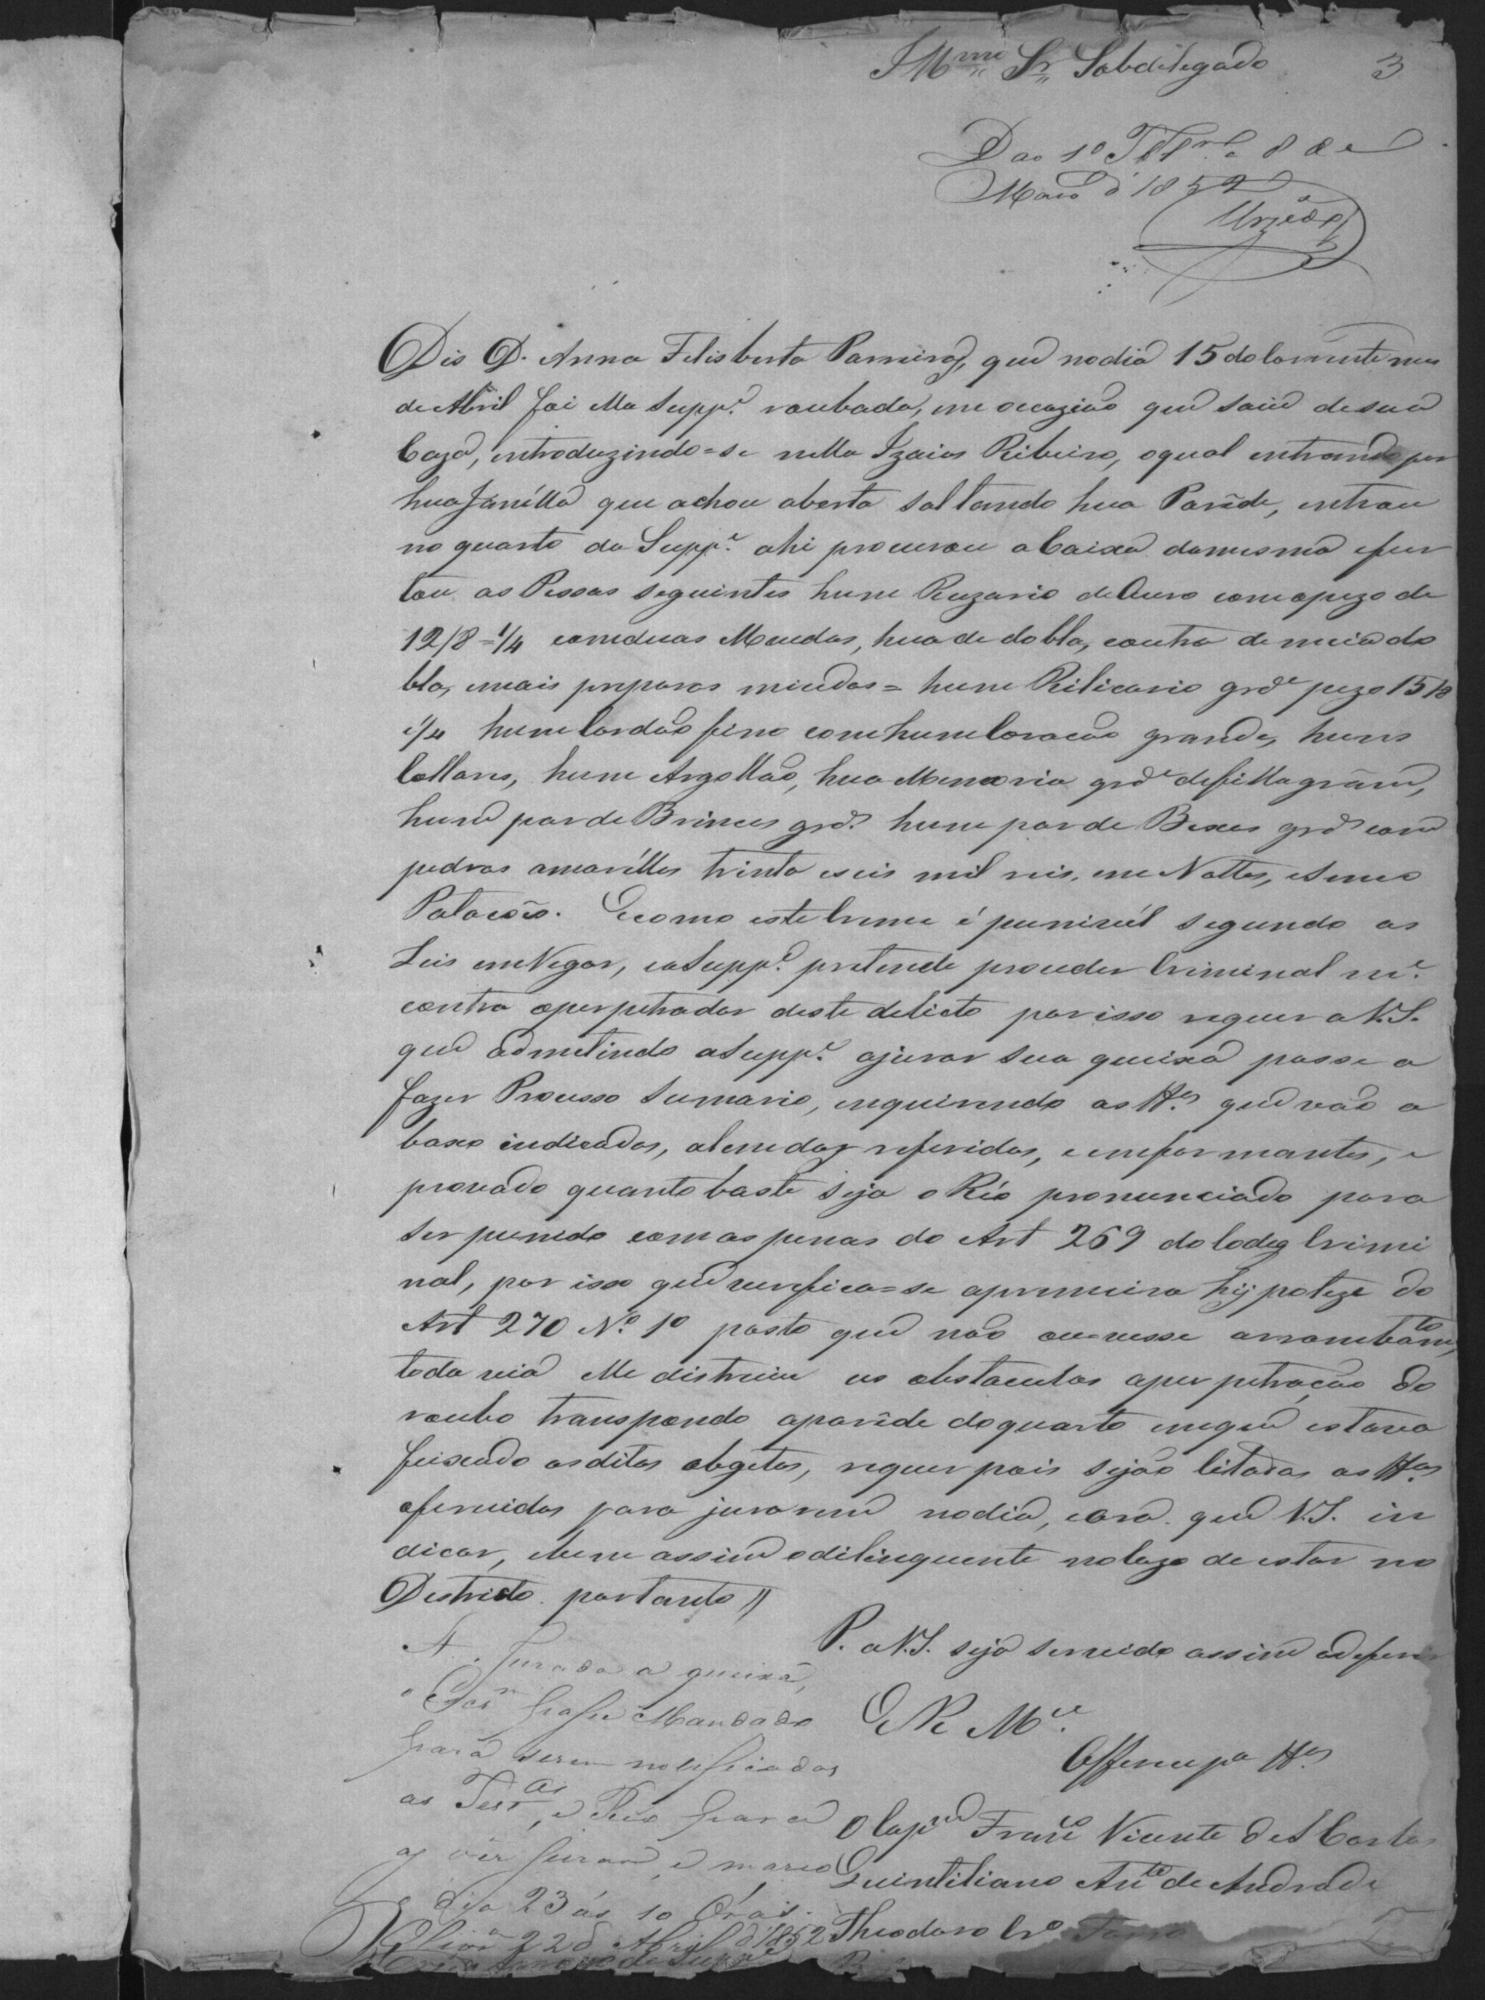 Illmo Sr Subdelegado 3
Ao 1º 8 de
Maio d 1852
Dis D. Anna Felisberta Parreira, que no dia 15 do Corrente mes
de Abril foi ella Suppe roubada, em occazião que saiu de sua
Caza, introduzindo=se nella Izaias Ribeiro, o qual entrando por
hua Janélla que achou aberta saltando hua Paréde, entrou
no quarto da Suppe ahi procurou a Caixa da mesma e fur
tou as Pessas seguintes hum Ruzario de Ouro com o pezo de
12/8=1/4 com duas Moedas, hua de dobla, e outra de meia do
bla, e mais preparos miudos= hum Rilicario grde pezo 15/8
1/4 hum Cordão fino com hum Coracão grande, huns
Collares, hum Argollão, hua Memoria grde de fillagrãm,
hum par de Brincos grds hum par de Bixas grds com
pedras amaréllas trinta e seis mil reis, em Nottas, e sinco
Patacões. E como este Crime é punivél segundo as
Leis em Vigor, e a Suppe pretende proceder Criminal me
contra o perpetrador deste delicto por isso requer a V.S.
que admetindo a Suppe a jurar sua queixa passe a
fazer Processo Sumario, inquirindo as ttas que vão a
baxo indicadas, alem das referidas, e emformantes, e
provado quanto baste seja o Réo pronunciado para
ser punido com as penas do Art 269 do Codeg Crimi
nal, por isso que verefica=se a premeira hypoteze do
Art 270 Nº 1º posto que não ouvesse arrombamto,
toda via elle distruiu os obstaculos a perpetração do
roubo transpondo a paréde do quarto em que estava
feixado as ditos obgetos, requer pois sejão Citadas as ttas
oferecidas para jurarem no dia, e ora que V.S. in
dicar, e bem assim o dilinquente no cazo de estar no
Destricto. portanto //
P. a V.S. seja servido assim o deferir
E R Mce
Offerece pa ttas
O Capam Franco Vicente de S Carlos
Quintiliano Anto de Andrade
Theodoro
A. Jurada a queixa,
o Escm passe Mandado
para serem notificadas
as Testas, e Reo para
q vir jurar, e marco
dia 23 ás 10 Oras.
22 d Abril d 1852